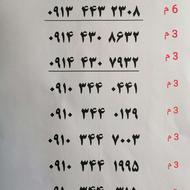 ۰۹۱۳ ۴۴۳ ۲۳۰۸ 6 م
۰۹۱۴ ۴۳۰ ۸۶۳۲ 3 م
۰۹۱۴ ۴۳۰ ۷۹۳۲ 3 م
۰۹۱۰ ۳۴۴ ۰۴۴۱ 3 م
۰۹۱۰ ۳۴۴ ۰۱۲۹ 3 م
۰۹۱۰ ۳۴۴ ۷۰۰۳ 3 م
۰۹۱۰ ۳۴۴ ۱۹۹۵ 3 م
۰۹۱۰ ۳۴۴